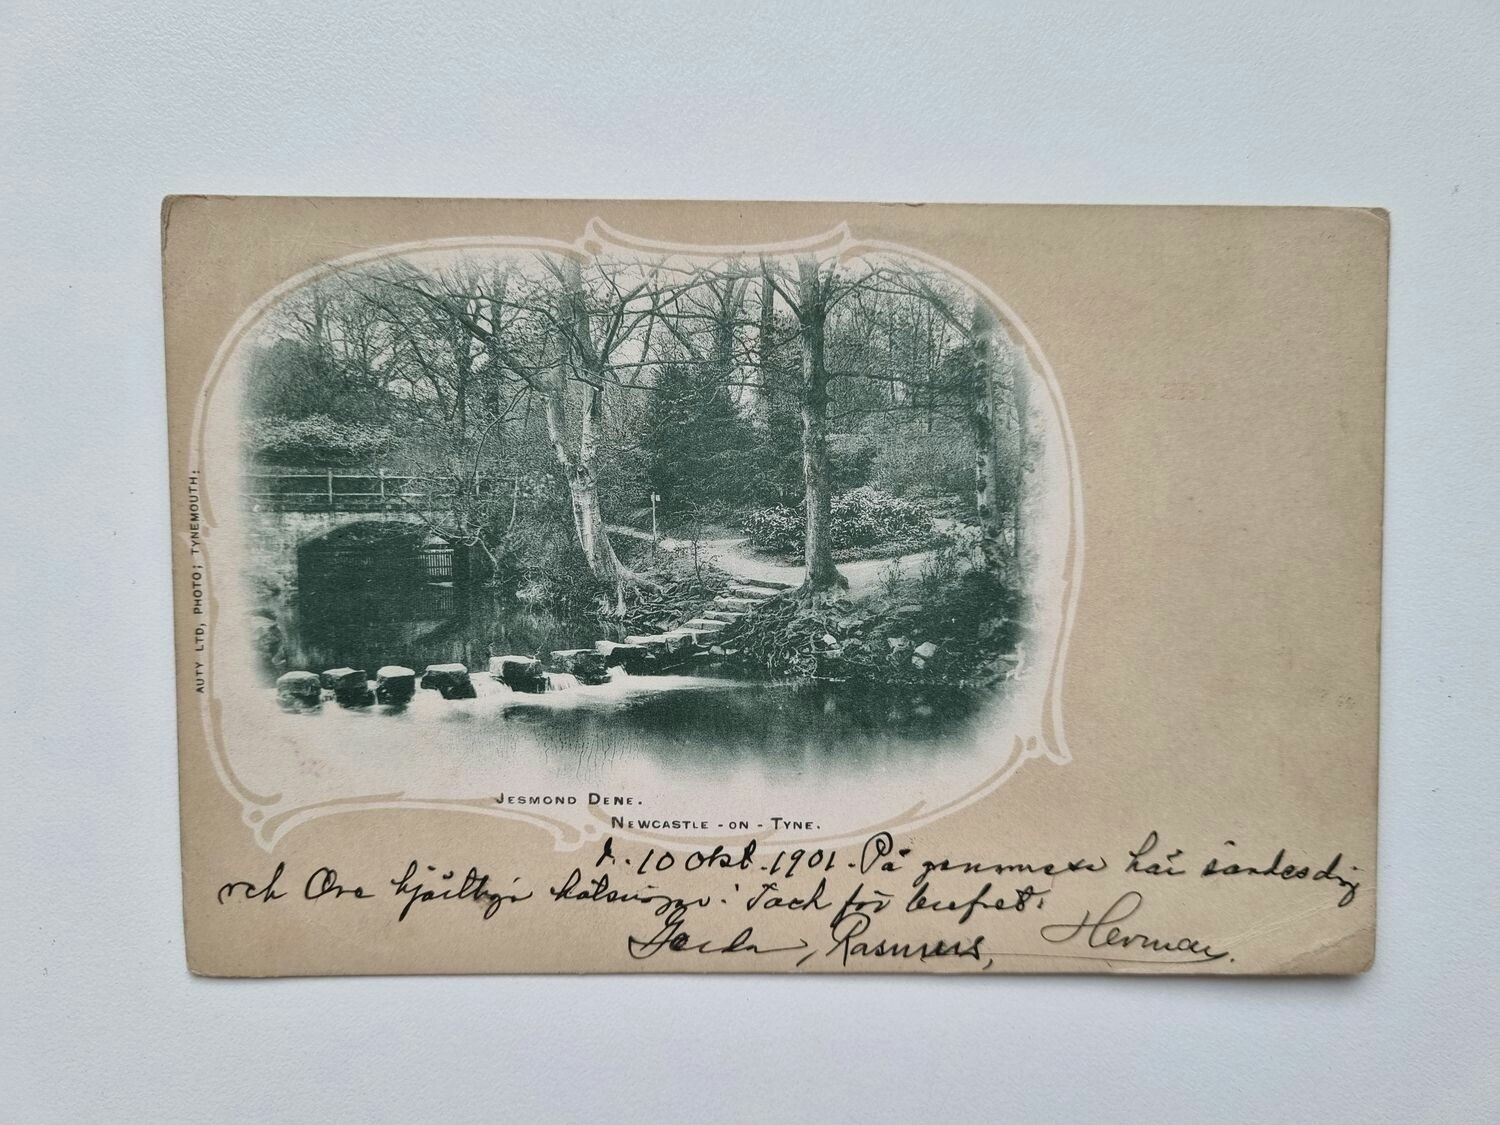 AUTY LTD, PHOTO; TYNEMOUTH:
JESMOND DENE.
NEWCASTLE - ON - TYNE.
d. 10 Okt. 1901. På här sändes dig
och Ove hjärtliga hälsningar. Tack för brefvet.
Gerda, Rasmus, Herman.